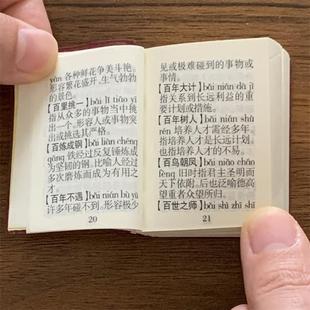 yān 各种鲜花争美斗艳。
形容繁花盛开，生气勃勃
的景色。
【百里挑一】bǎi lǐ tiāo yī
指从众多的事物当中挑
出一个，形容人或事物突
出或挑选其严格。
【百炼成钢】bǎi liàn chéng
gāng 铁经过反复锤炼成
为坚韧的钢，比喻人经过
多次磨炼而成为有用之
才。
【百年不遇】bǎi nián bù yù
许多年碰不到。形容极少
20
见或极难碰到的事物或
事情。
【百年大计】bǎi nián dà jì
指关系到长远利益的重
要计划或措施。
【百年树人】bǎi nián shù
rén 培养人才需经多年。
指培养人才是长远计划，
也指培养人才的不易。
【百鸟朝凤】bǎi niǎo cháo
fèng 旧时指君主圣明而
天下依附。后也泛喻德高
望重者众望所归。
【百世之师】bǎi shì zhī shī
21